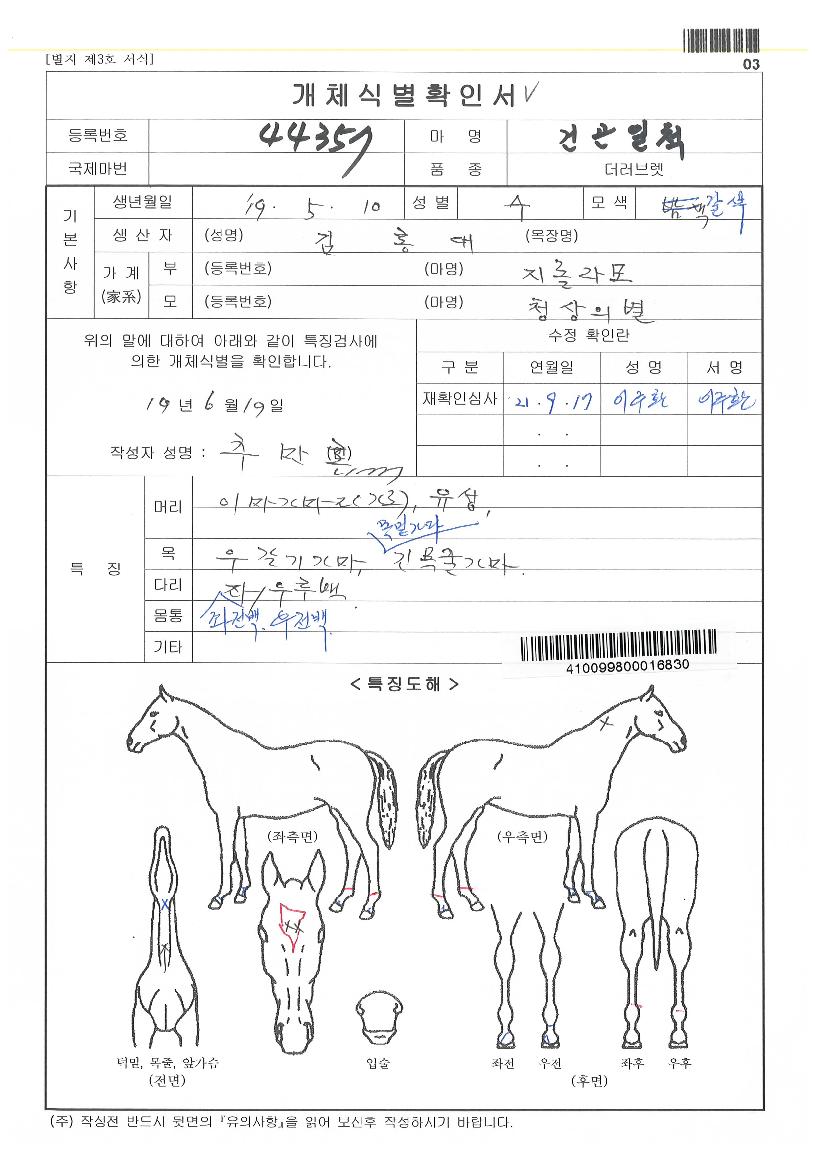 [별지 제3호 서식]
03
개체식별확인서 √
등록번호 44357 마 명 건곤일척
국제마번 품 종 더러브렛
기본사항
생년월일 19. 5. 10 성 별 수 모 색 갈색
생 산 자 (성명) 김홍대 (목장명)
가 계 (家系)
부 (등록번호) (마명) 지롤라모
모 (등록번호) (마명) 청상의별
위의 말에 대하여 아래와 같이 특징검사에
의한 개체식별을 확인합니다.
19 년 6 월 19 일
작성자 성명 : 추
수정 확인란
구 분 연월일 성 명 서 명
재확인심사 21. 9. 17 이주환 이주환
. .
. .
특 징
머리 이마가마2(가로), 유성,
목밑가마
목 우갈기가마, 긴목줄가마.
다리 좌/우후백
몸통 좌전백. 우전백.
기타
410099800016830
< 특징도해 >
(좌측면) (우측면)
턱밑, 목줄, 앞가슴 입술 좌전 우전 좌후 우후
(전면) (후면)
(주) 작성전 반드시 뒷면의 『유의사항』을 읽어 보신후 작성하시기 바랍니다.